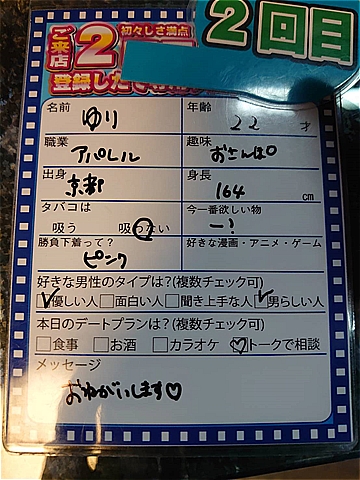 ご来店
2
初々しさ満点
2回目
登録した
名前 ゆり 年齢 22 才
職業 アパレル 趣味 おさんぽ
出身 京都 身長 164 cm
タバコは 今一番欲しい物
吸う 吸わない ー?
勝負下着って? 好きな漫画・アニメ・ゲーム
ピンク
好きな男性のタイプは?(複数チェック可)
優しい人 面白い人 聞き上手な人 男らしい人
本日のデートプランは?(複数チェック可)
食事 お酒 カラオケ トークで相談
メッセージ
おねがいします♡